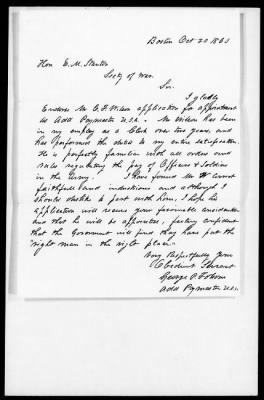 Boston Oct 20 1863
Hon E. M. Stanton
Secty of War.
Sir.
I gladly
Endorse Mr C. F. Wilson application for appointment
as Addl Paymaster U.S.A. Mr Wilson has been
in my employ as a Clerk over two years, and
has performed the duties to my entire satisfaction.
He is perfectly familiar with all orders and
rules regulating the pay of Officers & Soldiers
in the Army. I have found Mr W
faithful and industrious and although I
should dislike to part with him, I hope his
application will receive your favourable consideration
and that he will be appointed, feeling confident
that the Government will find they have put the
"right man in the right place."
Very Respectfully Your
Obedient Servant
George P. Folsom
Addl Paymaster U.S.A.